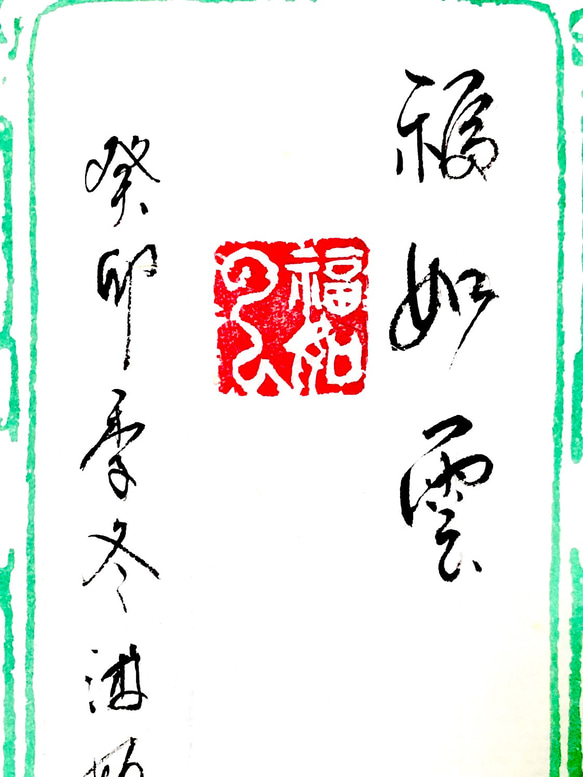 福如雲
福如云
癸卯季冬